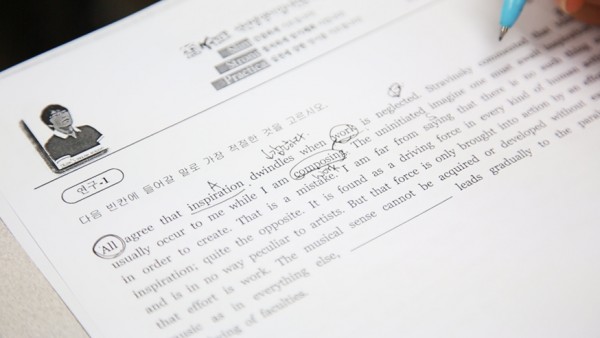 Slim
Strong
Practice
연구-1
다음 빈칸에 들어갈 말로 가장 적절한 것을 고르시오.
All agree that inspiration, dwindles when work is neglected. Stravinsky commented, that
usually occur to me while I am composing. The uninitiated imagine one must await
in order to create. That is a mistake. I am far from saying that there is no such thing
inspiration; quite the opposite. It is found as a driving force in every kind of human
and is in no way peculiar to artists. But that force is only brought into action by an
that effort is work. The musical sense cannot be acquired or developed without
music as in everything else, leads gradually to the
of faculties.